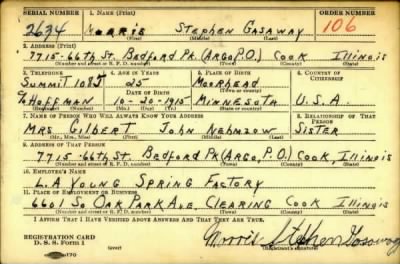 SERIAL NUMBER 1. NAME (Print) ORDER NUMBER
2634 Morris Stephen Gasaway 106
(First) (Middle) (Last)
2. ADDRESS (Print)
7715-66th St. Bedford Pk. (Argo, P.O.) Cook Illinois
(Number and street or R. F. D. number) (Town) (County) (State)
3. TELEPHONE 4. AGE IN YEARS 5. PLACE OF BIRTH 6. COUNTRY OF CITIZENSHIP
Summit 108J 25 Moorhead
DATE OF BIRTH
Hoffman 10-20-1915 Minnesota U.S.A.
(Exchange) (Number) (Mo.) (Day) (Yr.) (State or country)
7. NAME OF PERSON WHO WILL ALWAYS KNOW YOUR ADDRESS 8. RELATIONSHIP OF THAT PERSON
Mrs Gilbert John Nehmzow Sister
(Mr., Mrs., Miss) (First) (Middle) (Last)
9. ADDRESS OF THAT PERSON
7715-66th St. Bedford Pk (Argo, P.O.) Cook, Illinois
(Number and street or R. F. D. number) (Town) (County) (State)
10. EMPLOYER'S NAME
L.A Young Spring Factory
11. PLACE OF EMPLOYMENT OR BUSINESS
6601 So Oak Park Ave, Clearing Cook Illinois
(Number and street or R. F. D. number) (Town) (County) (State)
I AFFIRM THAT I HAVE VERIFIED ABOVE ANSWERS AND THAT THEY ARE TRUE.
REGISTRATION CARD
D. S. S. Form 1 (over) Morris Stephen Gasaway
(Registrant's signature)